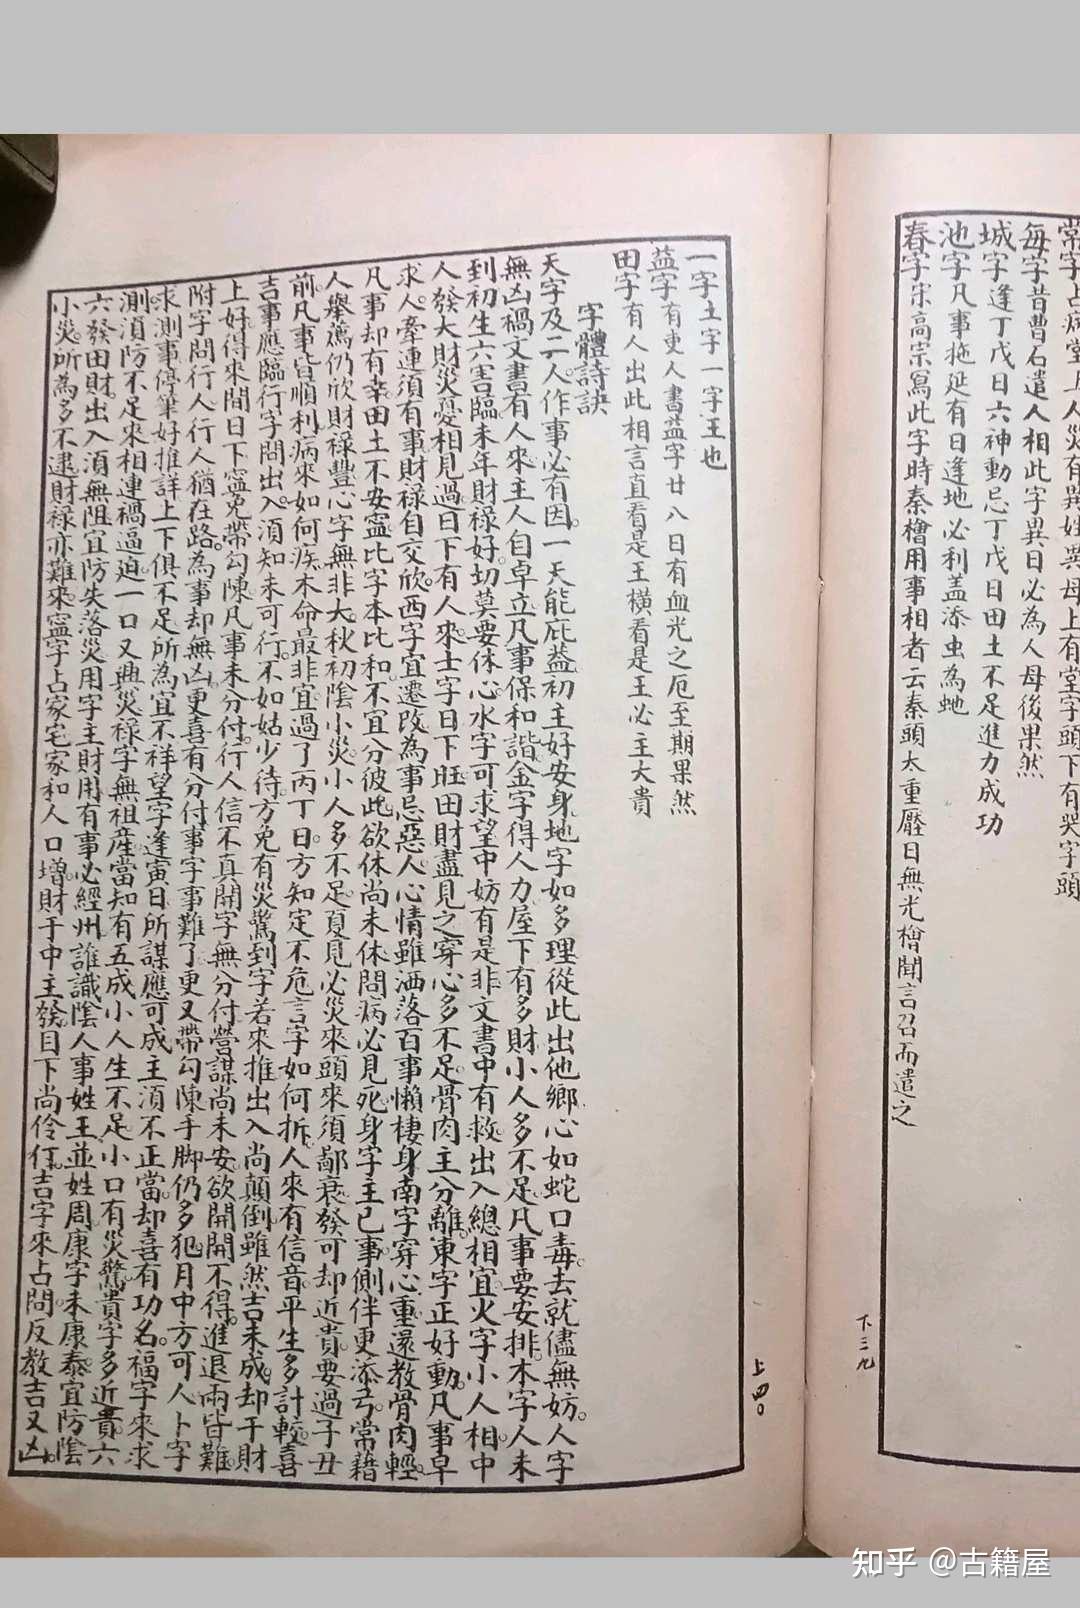 常字占病堂上人災有異姓異母上有堂字頭下有哭字頭
每字昔曹石遣人相此字異日必為人母後果然
城字逢丁戊日六神動忌丁戊日田土不足進力成功
池字凡事拖延有日逢地必利蓋添虫為虵
春字宋高宗寫此字時秦檜用事相者云秦頭太重壓日無光檜聞言召而遣之
下三九
一字土字一字王也
益字有更人書益字廿八日有血光之厄至期果然
田字有人出此相言直看是王橫看是王必主大貴
字體詩訣
天字及二人作事必有因。一天能庇益初主好安身地字如多理從此出他鄉心如蛇口毒。去就儘無妨。人字
無凶禍文書有人來主人自卓立凡事保和諧金字得人力屋下有多財小人多不足凡事要安排。木字人未
到初生六害臨未年財祿好。切莫要休心水字可求望中妨有是非文書中有救出入總相宜火字小人相中
人發大財災憂相見過日下有人來士字日下旺田財盡見之穿心多不足骨肉主分離。東字正好動。凡事早
求。人牽連須有事財祿自交欣。西字宜遷改為事忌惡人心情雖洒落百事懶棲身南字穿心重還教骨肉輕
凡事却有幸田土不安寧比字本比和。不宜分彼此欲休尚未休問病必見死身字主已事側伴更添弓。常藉
人舉薦仍欣財祿豐心字無非大。秋初陰小災。小人多不足夏見必災來頭來須鄙衰發可却近貴要過子丑
前。凡事皆順利病來如何疾木命最非宜過了丙丁日。方知定不危言字如何拆。人來有信音平生多計較喜
吉事應臨行字問出入。須知未可行。不如姑少待。方免有災驚到字若來推出入尚顛倒雖然吉未成。却干財
上好得來間日下寧免帶勾陳凡事未分付。行人信不真開字無分付營謀尚未安欲開開不得。進退兩皆難。
附字問行人行人猶在路為事却無凶更喜有分付事字事難了更又帶勾陳手脚仍多犯月中方可人卜字
求測事停筆好推詳上下俱不足所為宜不祥望字逢寅日所謀應可成主須不正當却喜有功名。福字來求
測湏防不足來相連禍逼迫一口又興災祿字無祖産當知有五成小人生不足小口有災驚貴字多近貴。六
六發田財。出入湏無阻宜防失落災用字主財用有事必經州誰識陰人事姓王並姓周康字未康泰宜防陰
小災所為多不逮財祿亦難來寧字占家宅家和人口增財于中主發。目下尚伶仃吉字來占問反教吉又凶。
上四〇
知乎 @古籍屋